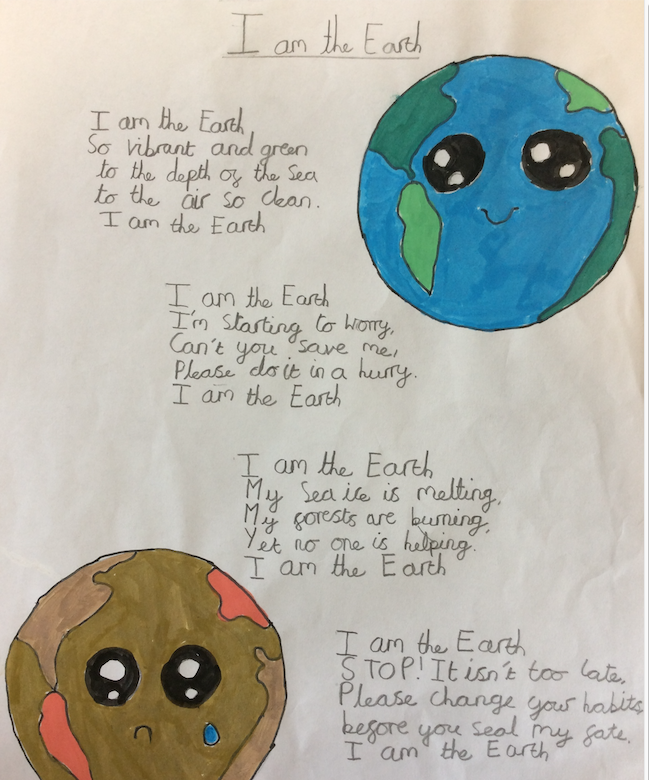 I am the Earth
I am the Earth
So vibrant and green
to the depth of the sea
to the air so clean.
I am the Earth
I am the Earth
I'm starting to worry,
Can't you save me,
Please do it in a hurry.
I am the Earth
I am the Earth
My Sea ice is melting,
My forests are burning,
Yet no one is helping.
I am the Earth
I am the Earth
STOP! It isn't too late,
Please change your habits
before you seal my fate.
I am the Earth